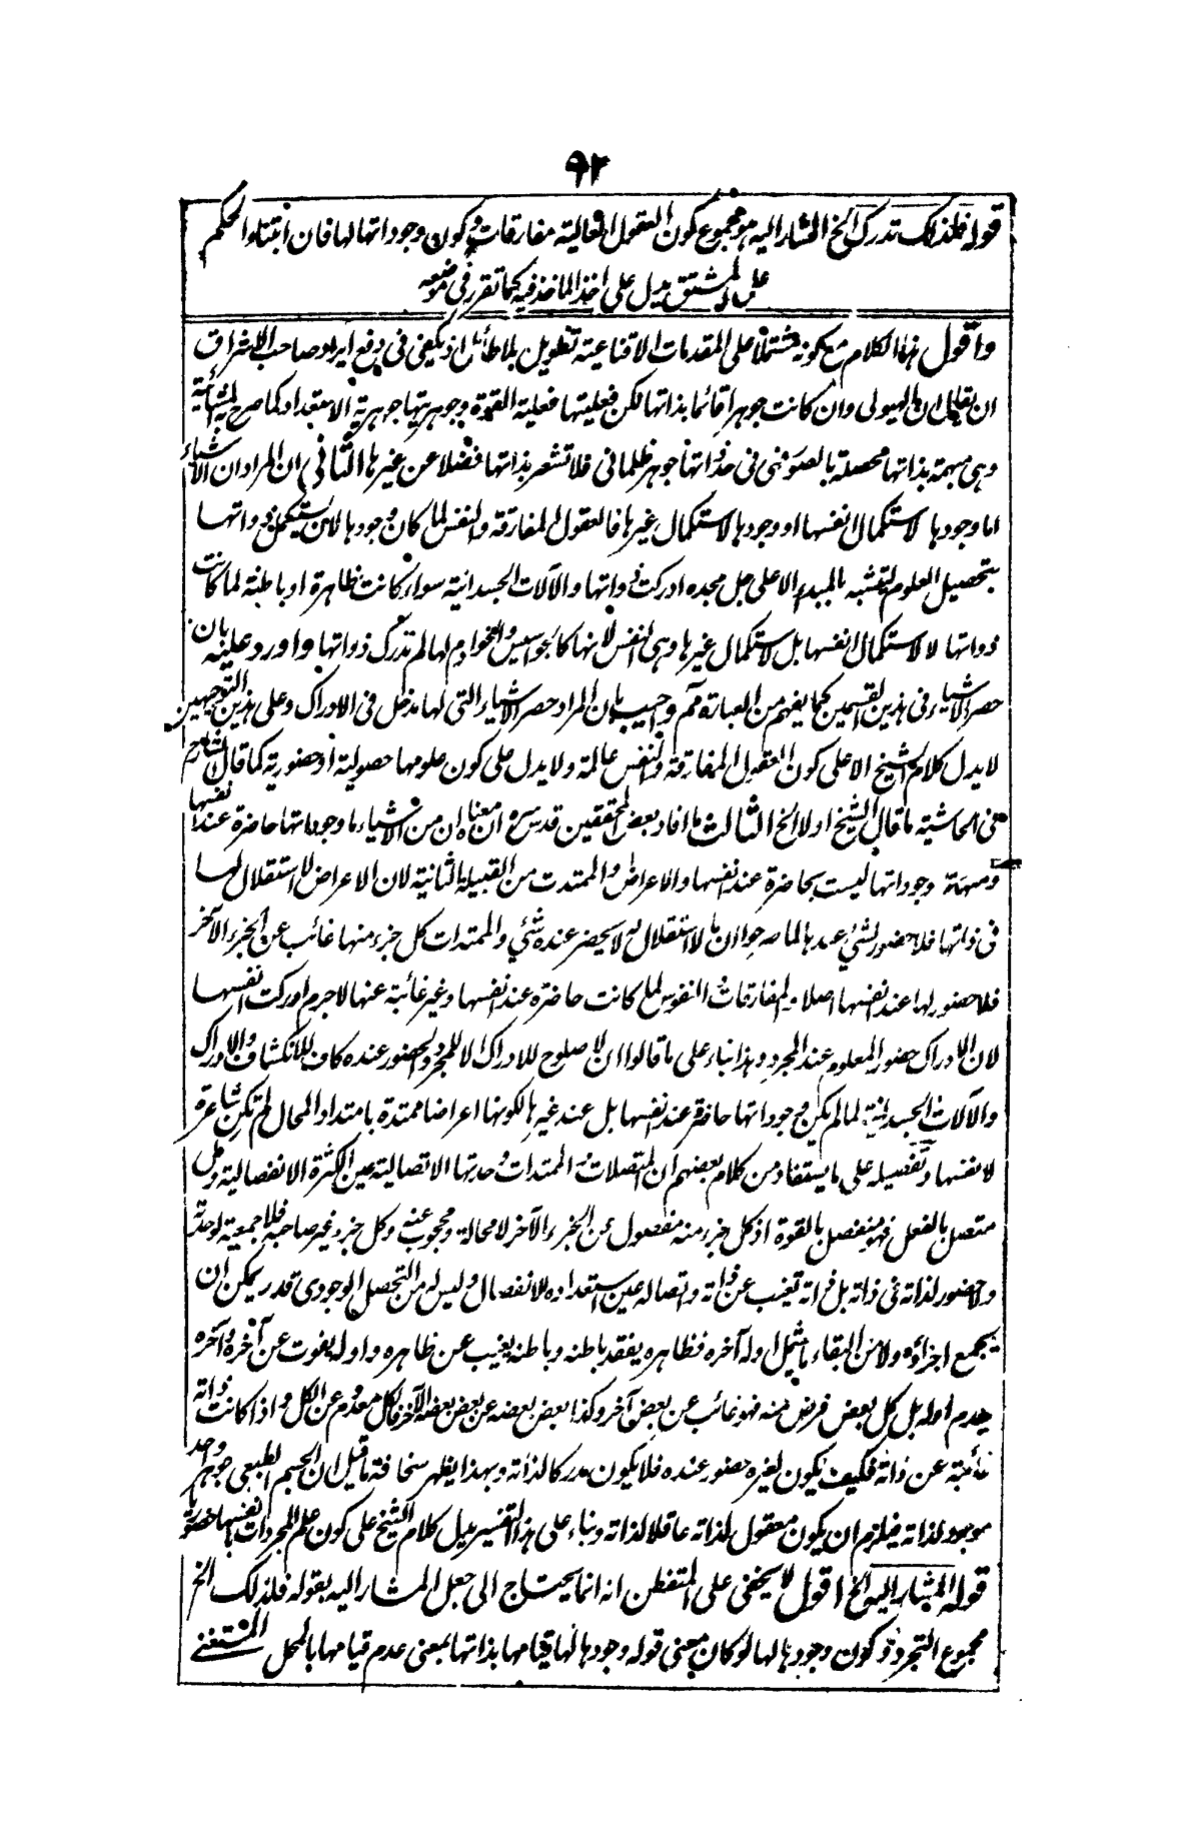 ٩٢
قوله فلذلك تدرك الخ المشار اليه هو مجموع كون العقول الفعالية مفارقات وكون وجوداتها لها فان ابتناء الحكم
على المشتق يدل على اخذ الماخذ فيه كما تقرر في موضعه
واقول هذا الكلام مع كونه مشتملا على المقدمات الاقناعية تطويل بلا طائل اذ يكفي في دفع ايراد صاحب الاشراق
ان يقال ان الهيولى وان كانت جوهرا قائما بذاتها لكن فعليتها فعلية القوة وجوهريتها جوهرية الاستعداد كما صرح به المشائية
وهي مبهمة بذاتها محصلة بالصور فهي في ذواتها جوهر ظلماني فلا تشعر بذاتها فضلا عن غيرها الثاني ان المراد ان الاشياء
اما وجودها لاستكمال انفسها او وجودها لاستكمال غيرها فالعقول المفارقة والنفس لما كان وجودها لان يستكمل ذواتها
بتحصيل العلوم والتشبه بالمبدء الاعلى جل مجده ادركت ذواتها والآلات الجسدانية سواء كانت ظاهرة او باطنة لما كانت
ذواتها لا لاستكمال انفسها بل لاستكمال غيرها وهي النفس لانها كالجواسيس والخوادم لها لم تدرك ذواتها واورد عليه بان
حصر الاشياء في هذين القسمين كما يفهم من العبارة مم واجيب بان المراد حصر الاشياء التي لها مدخل في الادراك وعلى هذين التوجيهين
لا يدل كلام الشيخ الا على كون العقول المفارقة والنفس عالمة ولا يدل على كون علومها حصولية او حضورية كما قال الشارح
في الحاشية ما قال الشيخ اولا الخ الثالث ما افاد بعض المحققين قدس سره ان معناه ان من الاشياء ما وجوداتها حاضرة عند انفسها
ومنها ما وجوداتها ليست بحاضرة عند انفسها والاعراض والممتدات من القبيلة الثانية لان الاعراض لا استقلال لها
في ذاتها فلا حضور لشيء عندها لما صرحوا ان ما لا استقلال له لا يحضر عنده شئ والممتدات كل جزء منها غائب عن الجزء الآخر
فلا حضور لها عند انفسها اصلا والمفارقات النفوس لما كانت حاضرة عند انفسها وغير غائبة عنها لا جرم ادركت انفسها
لان الادراك حضور المعلوم عند المجرد وهذا بناء على ما قالوا ان لا صلوح للادراك الا للمجرد والحضور عنده كاف للانكشاف والادراك
والآلات الجسدانية لما لم يكن وجوداتها حاضرة عند انفسها بل عند غيرها لكونها اعراضا ممتدة بامتداد المحال لم تكن شاعرة
لانفسها وتفصيله على ما يستفاد من كلام بعضهم ان المتصلات والممتدات وحدتها الاتصالية عين الكثرة الانفصالية وكل
متصل بالفعل فهو منفصل بالقوة اذ كل جزء منه مفصول عن الجزء الآخر لا محالة ومحجوب عنه وكل جزء غير صاحبه فلا جمعية لوحدته
ولا حضور لذاته في ذاته بل ذاته تغيب عن ذاته واتصاله عين استعداده للانفصال وليس له من التحصل الوجودي قدر يمكن ان
يجمع اجزاؤه ولا من البقاء ما يشمل اوله آخره فظاهره يفقد باطنه وباطنه يغيب عن ظاهره واوله يفوت عن آخره وآخره
يعدم اوله بل كل بعض فرض منه فهو غائب عن بعض آخر وكذا بعض بعضه عن بعض بعضه الآخر فالكل معدوم عن الكل واذا كانت ذاته
غائبة عن ذاته فكيف يكون لغيره حضور عنده فلا يكون مدركا لذاته وبهذا يظهر سخافة ما قيل ان الجسم الطبعي جوهر واحد
موجود لذاته فيلزم ان يكون معقول لذاته عاقلا لذاته وبناء على هذا التفسير يدل كلام الشيخ على كون علم المجردات بانفسها حضوريا
قوله المشار اليه الخ اقول لا يخفى على المتفطن انه انما يحتاج الى جعل المشار اليه بقوله فلذلك الخ
مجموع التجرد وكون وجودها لها لو كان معنى قوله وجودها لها قيامها بذاتها بمعنى عدم قيامها بالمحل المستغنى